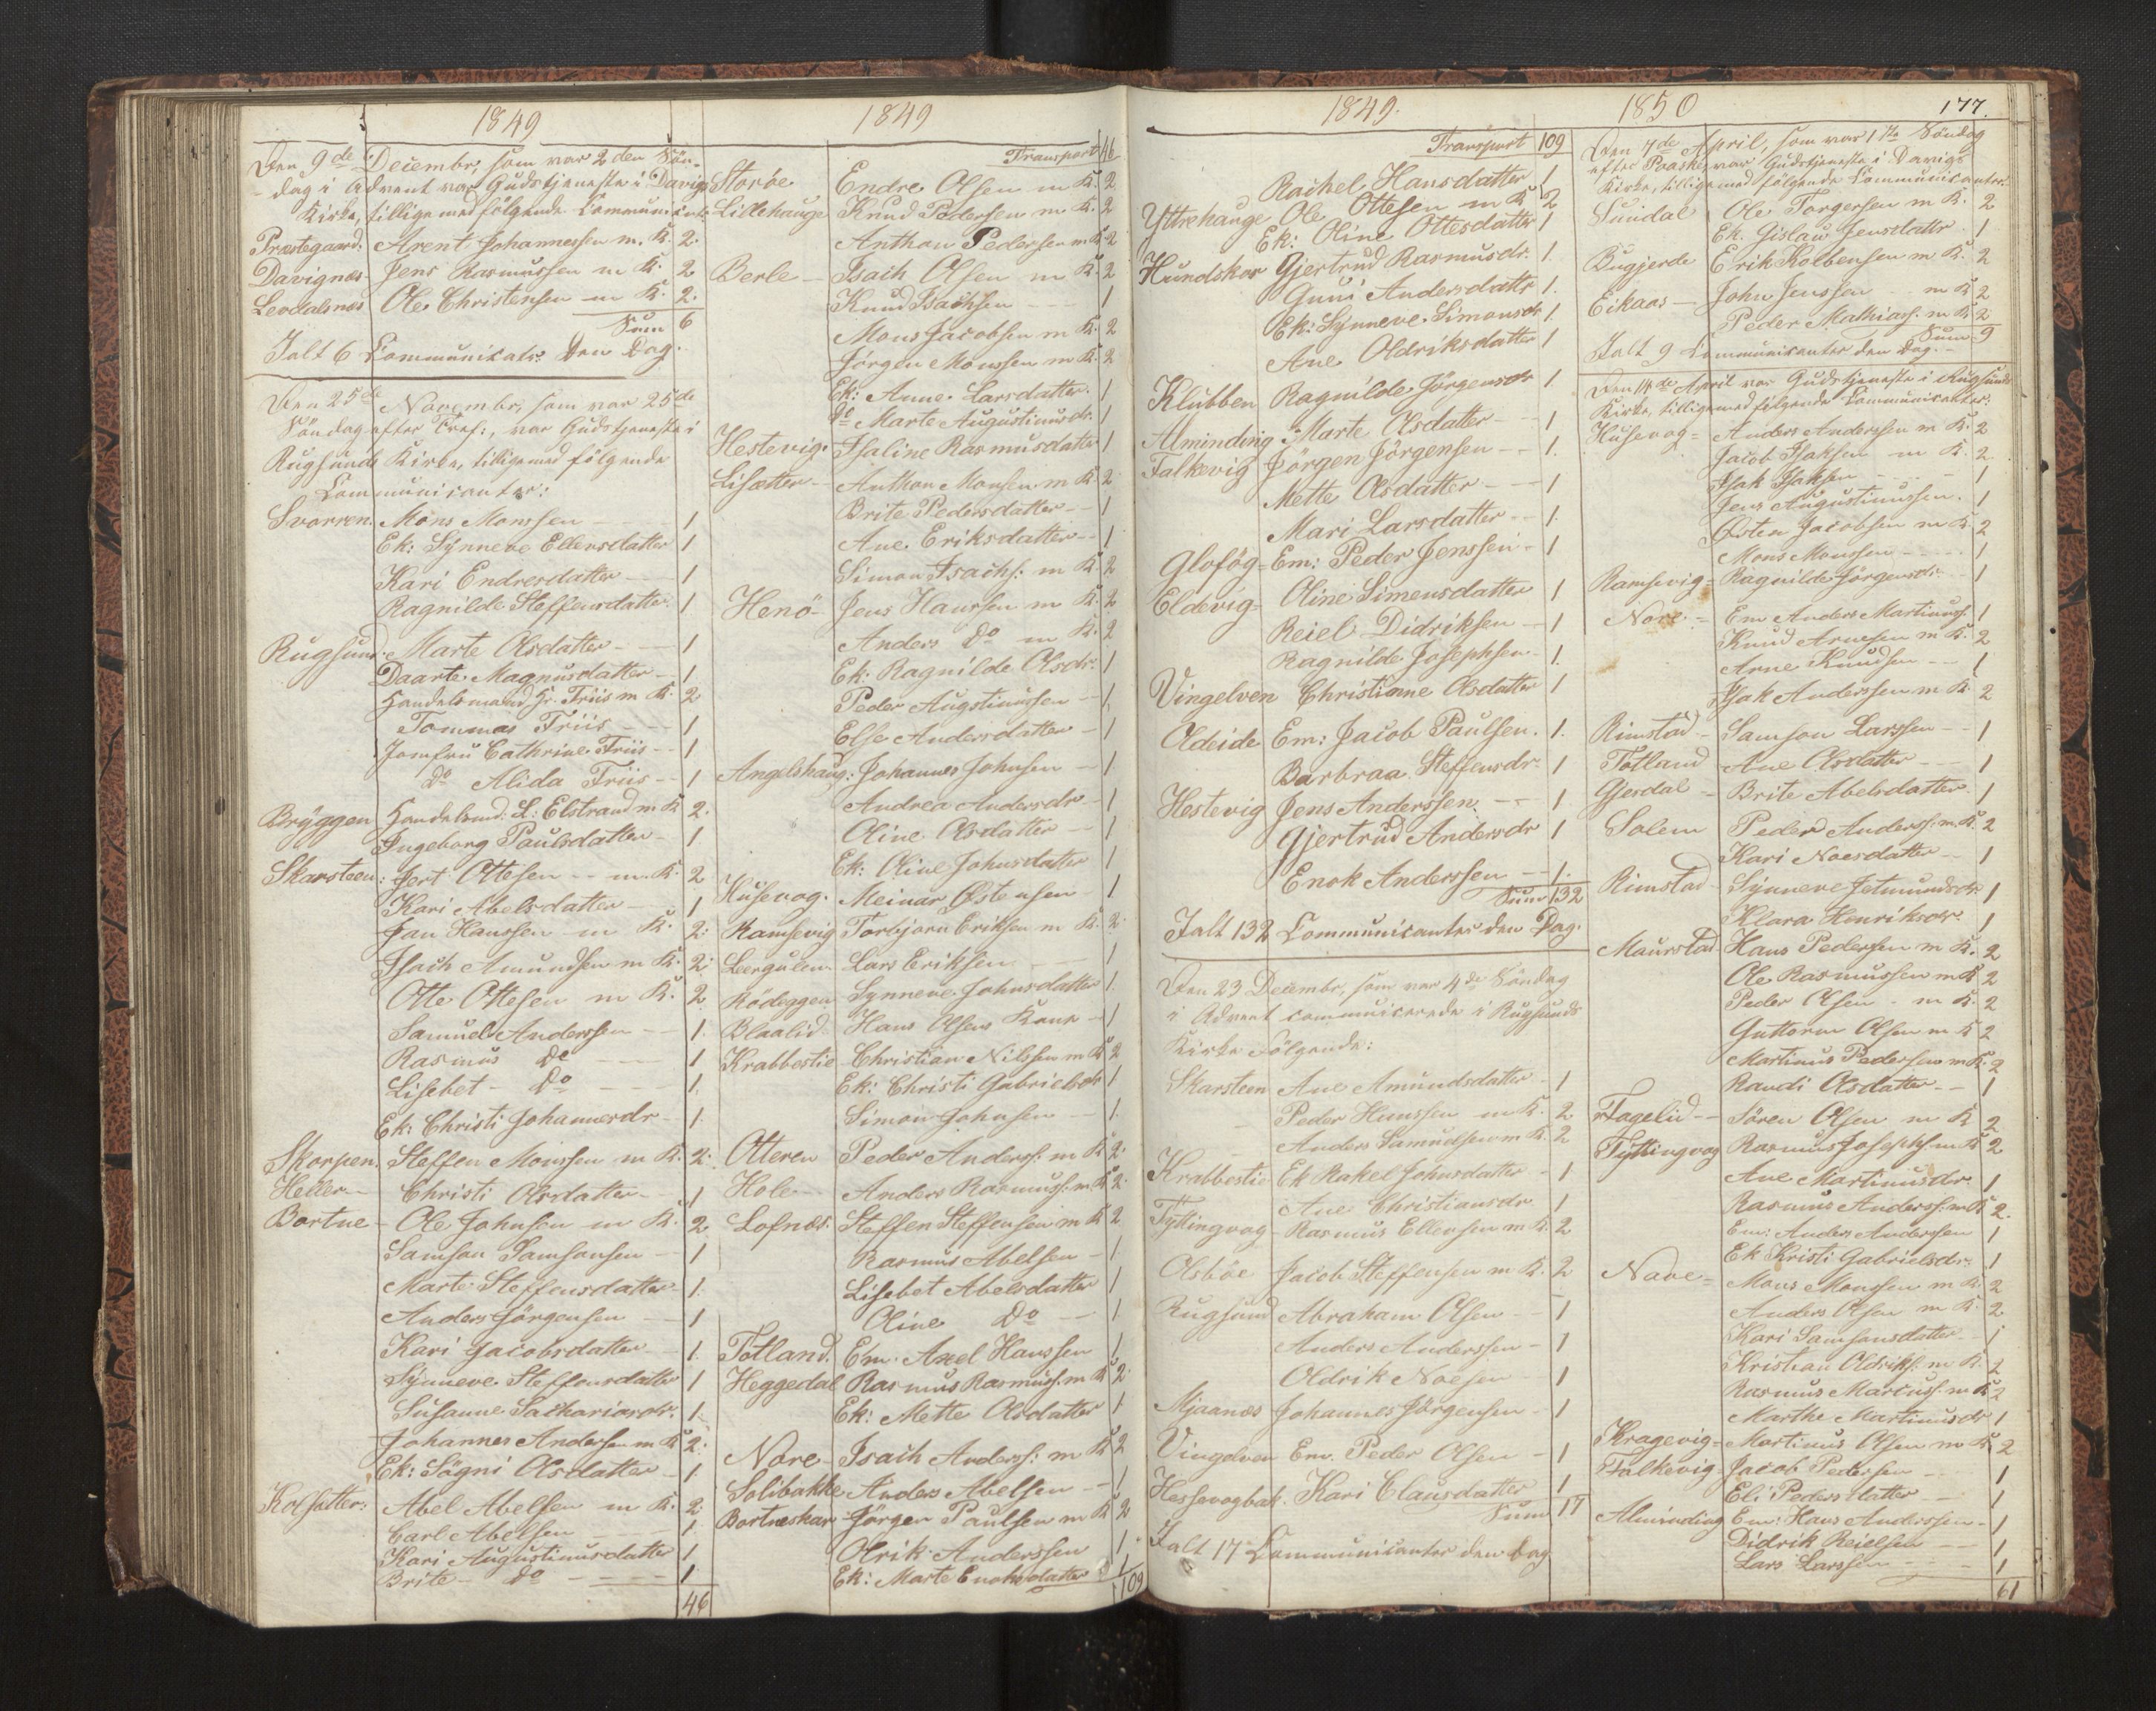 1849
Den 9de Decembr, som var 2den Søn-
dag i Advent var Gudstjeneste i Davigs
Kirke, tillige med følgende Communicant:
Præstegaard: Arent Johannessen m. K. 2.
Davignæs- Jens Rasmussen m K. 2
Levdalsnæs Ole Christensen m K. 2.
Sum 6
Ialt 6 Communicatr: Den Dag.
Den 25de Novembr, som var 25de
Søndag efter Tref:, var Gudstjeneste i
Rugsunds Kirke, tilligemed følgende
Communicanter:
Svorren. Mons Monssen 1
Ek: Synneve Ellensdatter 1
Kari Endresdatter 1
Ragnilde Steffensdatter 1
Rugsund. Marte Olsdatter 1
Daarte Magnusdatter 1
Handelsmand Hr. Friis m K. 2
Tommas Friis 1
Jomfru Cathrine Friis 1
Do Alida Friis 1
Bryggen Handelsmd: L: Elstrand m K 2.
Ingeborg Paulsdatter 1
Skarsteen: Gert Ottesen m. K. 2
Kari Abelsdatter 1
Jan Hanssen m K. 2:
Isach Amundsen m K. 2:
Otte Ottesen m K. 2
Samuel Anderssen 1.
Rasmus Do 1
Lisebet Do 1.
Ek: Christi Johannesdr 1.
Skorpen. Steffen Monssen m K. 2:
Heller Christi Olsdatter 1
Bortne Ole Johnsen m K. 2.
Samson Samsonsen 1
Marte Steffensdatter 1.
Anders Jørgensen 1
Kari Jacobsdatter 1.
Synneve Steffensdatter 1
Susanne Sachariasdr. 1.
Johannes Andersen m K 2:
Ek: Søgni Olsdatter 1.
Kolsetter: Abel Abelsen m K. 2.
Carl Abelsen 1.
Kari Augustinusdatter 1
Brite Do 1
46
1849
Transport 46
Storøe Endre Olsen m K. 2
Lillehauge Knud Pedersen m K. 2
Anthon Pedersen m K 2
Berle Isach Olsen m K. 2
Knud Isachsen 1
Mons Jacobsen m K. 2
Jørgen Monssen m K. 2
Ek: Anne Larsdatter. 1
Do Marte Augustinusdr. 1
Hestevig. Isaline Rasmusdatter 1
Lisætter Anthon Monsen m K. 2
Brite Pedersdatter 1
Ane Eriksdatter 1
Simon Isachs: m K 2
Henø Jens Hanssen m K. 2
Anders Do m K. 2
Ek: Ragnilde Olsdr. 1
Peder Augstinussen 1.
Else Andersdatter 1
Angelshaug: Johannes Johnsen 1
Andrea Andersdr 1
Oline Olsdatter 1
Ek: Oline Johnsdatter 1
Husevog. Meinar Østensen 1
Ramsevig Torbjørn Eriksen m K. 2.
Leergulen Lars Eriksen 1
Rødeggen Synneve Johnsdatter 1.
Blaalid Hans Olsens Kone 1
Krabbestie Christian Nilssen m K 2
Ek: Christi Gabrielsdr 1
Simon Johnsen 1.
Otteren Peder Anderss: m K 2.
Hole Anders Rasmuss: m K 2.
Lofnæs. Steffen Steffensen m K 2
Rasmus Abelsen 1.
Lisebet Abelsdatter 1
Oline Do 1
Totland. Em: Axel Hanssen 1
Heggedal Rasmus Rasmuss: m K 2.
Ek: Mette Olsdatter 1
Nore Isach Anderss: m K 2
Solibakke Anders Abelsen 1
Bortneskar Jørgen Paulsen m K 2
Olrik Anderssen 1
Ek: Marte Enoksdatter 1
109
1849.
Transport 109
Rachel Hansdatter 1
Yttrehauge Ole Ottesen m K 2
Ek: Oline Ottesdatter 1
Hundskor Gjertrud Rasmusdr. 1.
Guni Andersdattr 1.
Ek: Synneve Simonsdr 1.
Ane Oldriksdatter 1
Klubben Ragnilde Jørgensdr 1.
Alminding Marte Olsdatter 1
Falkevig Jørgen Jørgensen 1.
Mette Olsdatter 1
Mari Larsdatter 1.
Gloføg Em: Peder Jenssen 1
Eldevig Oline Simensdatter 1
Reiel Didriksen 1
Ragnilde Josephsen 1.
Vingelven Christianne Olsdatter 1
Oldeide Em: Jacob Paulsen. 1.
Barbraa Steffensdr. 1
Hestevig Jens Anderssen. 1
Gjertrud Andersdr 1
Enok Anderssen 1.
Sum 132
Ialt 132 Communicanter den Dag.
Den 23 Decembr, som var 4de Søndag
i Advent communicerede i Rugsunds
Kirke Følgende:
Skarsteen Ane Amundsdatter 1
Peder Hanssen m K. 2
Anders Samuelsen m K. 2
Krabbestie Ek Rakel Johnsdatter 1
Ane Christiansdr 1
Tyttingvog Rasmus Ellensen m K. 2
Olsbøe Jacob Steffensen m K. 2
Rugsund Abraham Olsen 1
Anders Anderssen 1
Oldrik Noesen 1
Mjaanæs Johannes Jørgensen 1
Vingelven Em. Peder Olsen 1
Hessevogbak. Kari Clausdatter 1
Sum 17
Ialt 17 Communicanter den Dag
1850 177.
Den 7de April, som var 1ste Søndag
efter Paaske, var Gudstjeneste i Davigs
Kirke, tilligemed følgende Communicanter.
Ole Torgersen m K. 2
Ek. Gislau Jensdattr 1
Bugjerde Erik Kolbensen m K. 2
Eikaas John Jenssen m K 2
Peder Mathiass. m K 2
Sum 9
Ialt 9 Communicanter den Dag.
Den 14de April var Gudstjeneste i Rugsunds
Kirke, tilligemed følgende Communicanter:
Husevog Anders Anderssen m K. 2
Jacob Isaksen m K. 2
Isak Isaksen 1
Jens Augustinussen. 1
Østen Jacobsen m K. 2
Mons Monssen 1
Ramsevig Ragnilde Jørgensdr 1
Nore Em Anders Martinuss. 1
Knud Arnesen m K. 2
Arne Knudsen 1
Isak Anderssen m K. 2
Rimstad Samson Larssen 1
Totland Ane Olsdatter 1
Gjesdal Brite Abelsdatter 1
Solem Peder Anderss. m K. 2
Kari Noesdatter 1
Rimstad Synneve Jetmundsdr 1
Klara Henriksdr. 1
Maurstad Hans Pedersen m K. 2
Ole Rasmussen m K 2
Peder Olsen m K. 2
Guttorm Olsen m K 2
Martinus Pedersen m K. 2
Randi Olsdatter 1
Fagelid Søren Olsen m K 2
Tyttingvog Rasmus Josephs. m K 2
Ane Martinusdr. 1
Rasmus Anderss. m K 2.
Em: Anders Anderssen 1
Ek Kristi Gabrielsdr. 1
Nave Mons Monssen m K 2
Anders Olsen m K. 2
Kari Samsonsdatter 1
Kristian Oldriks. m K. 2
Rasmus Marcuss. m K 2
Marthe Martinusdr 1
Kragevig Martinus Olsen m K 2
Falkevig Jacob Pedersen 1
Eli Pedersdatter 1
Alminding Em: Hans Anderssen 1
Didrik Reielsen 1
Lars Larssen 1
61